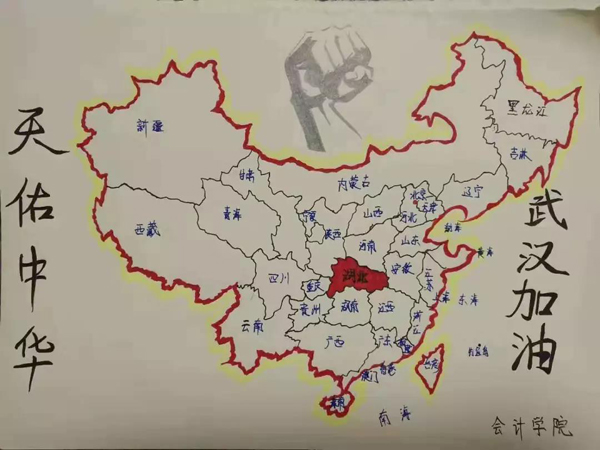 天佑中华
黑龙江
新疆
吉林
甘肃
内蒙古
北京
辽宁
天津
青海
宁夏
山西
河北
西藏
陕西
渤海
河南
山东
黄海
四川
湖北
安徽
江苏
重庆
上海
东海
贵州
江西
浙江
云南
广西
广东
钓鱼岛
台湾
香港
澳门
海南
南海
武汉加油
会计学院